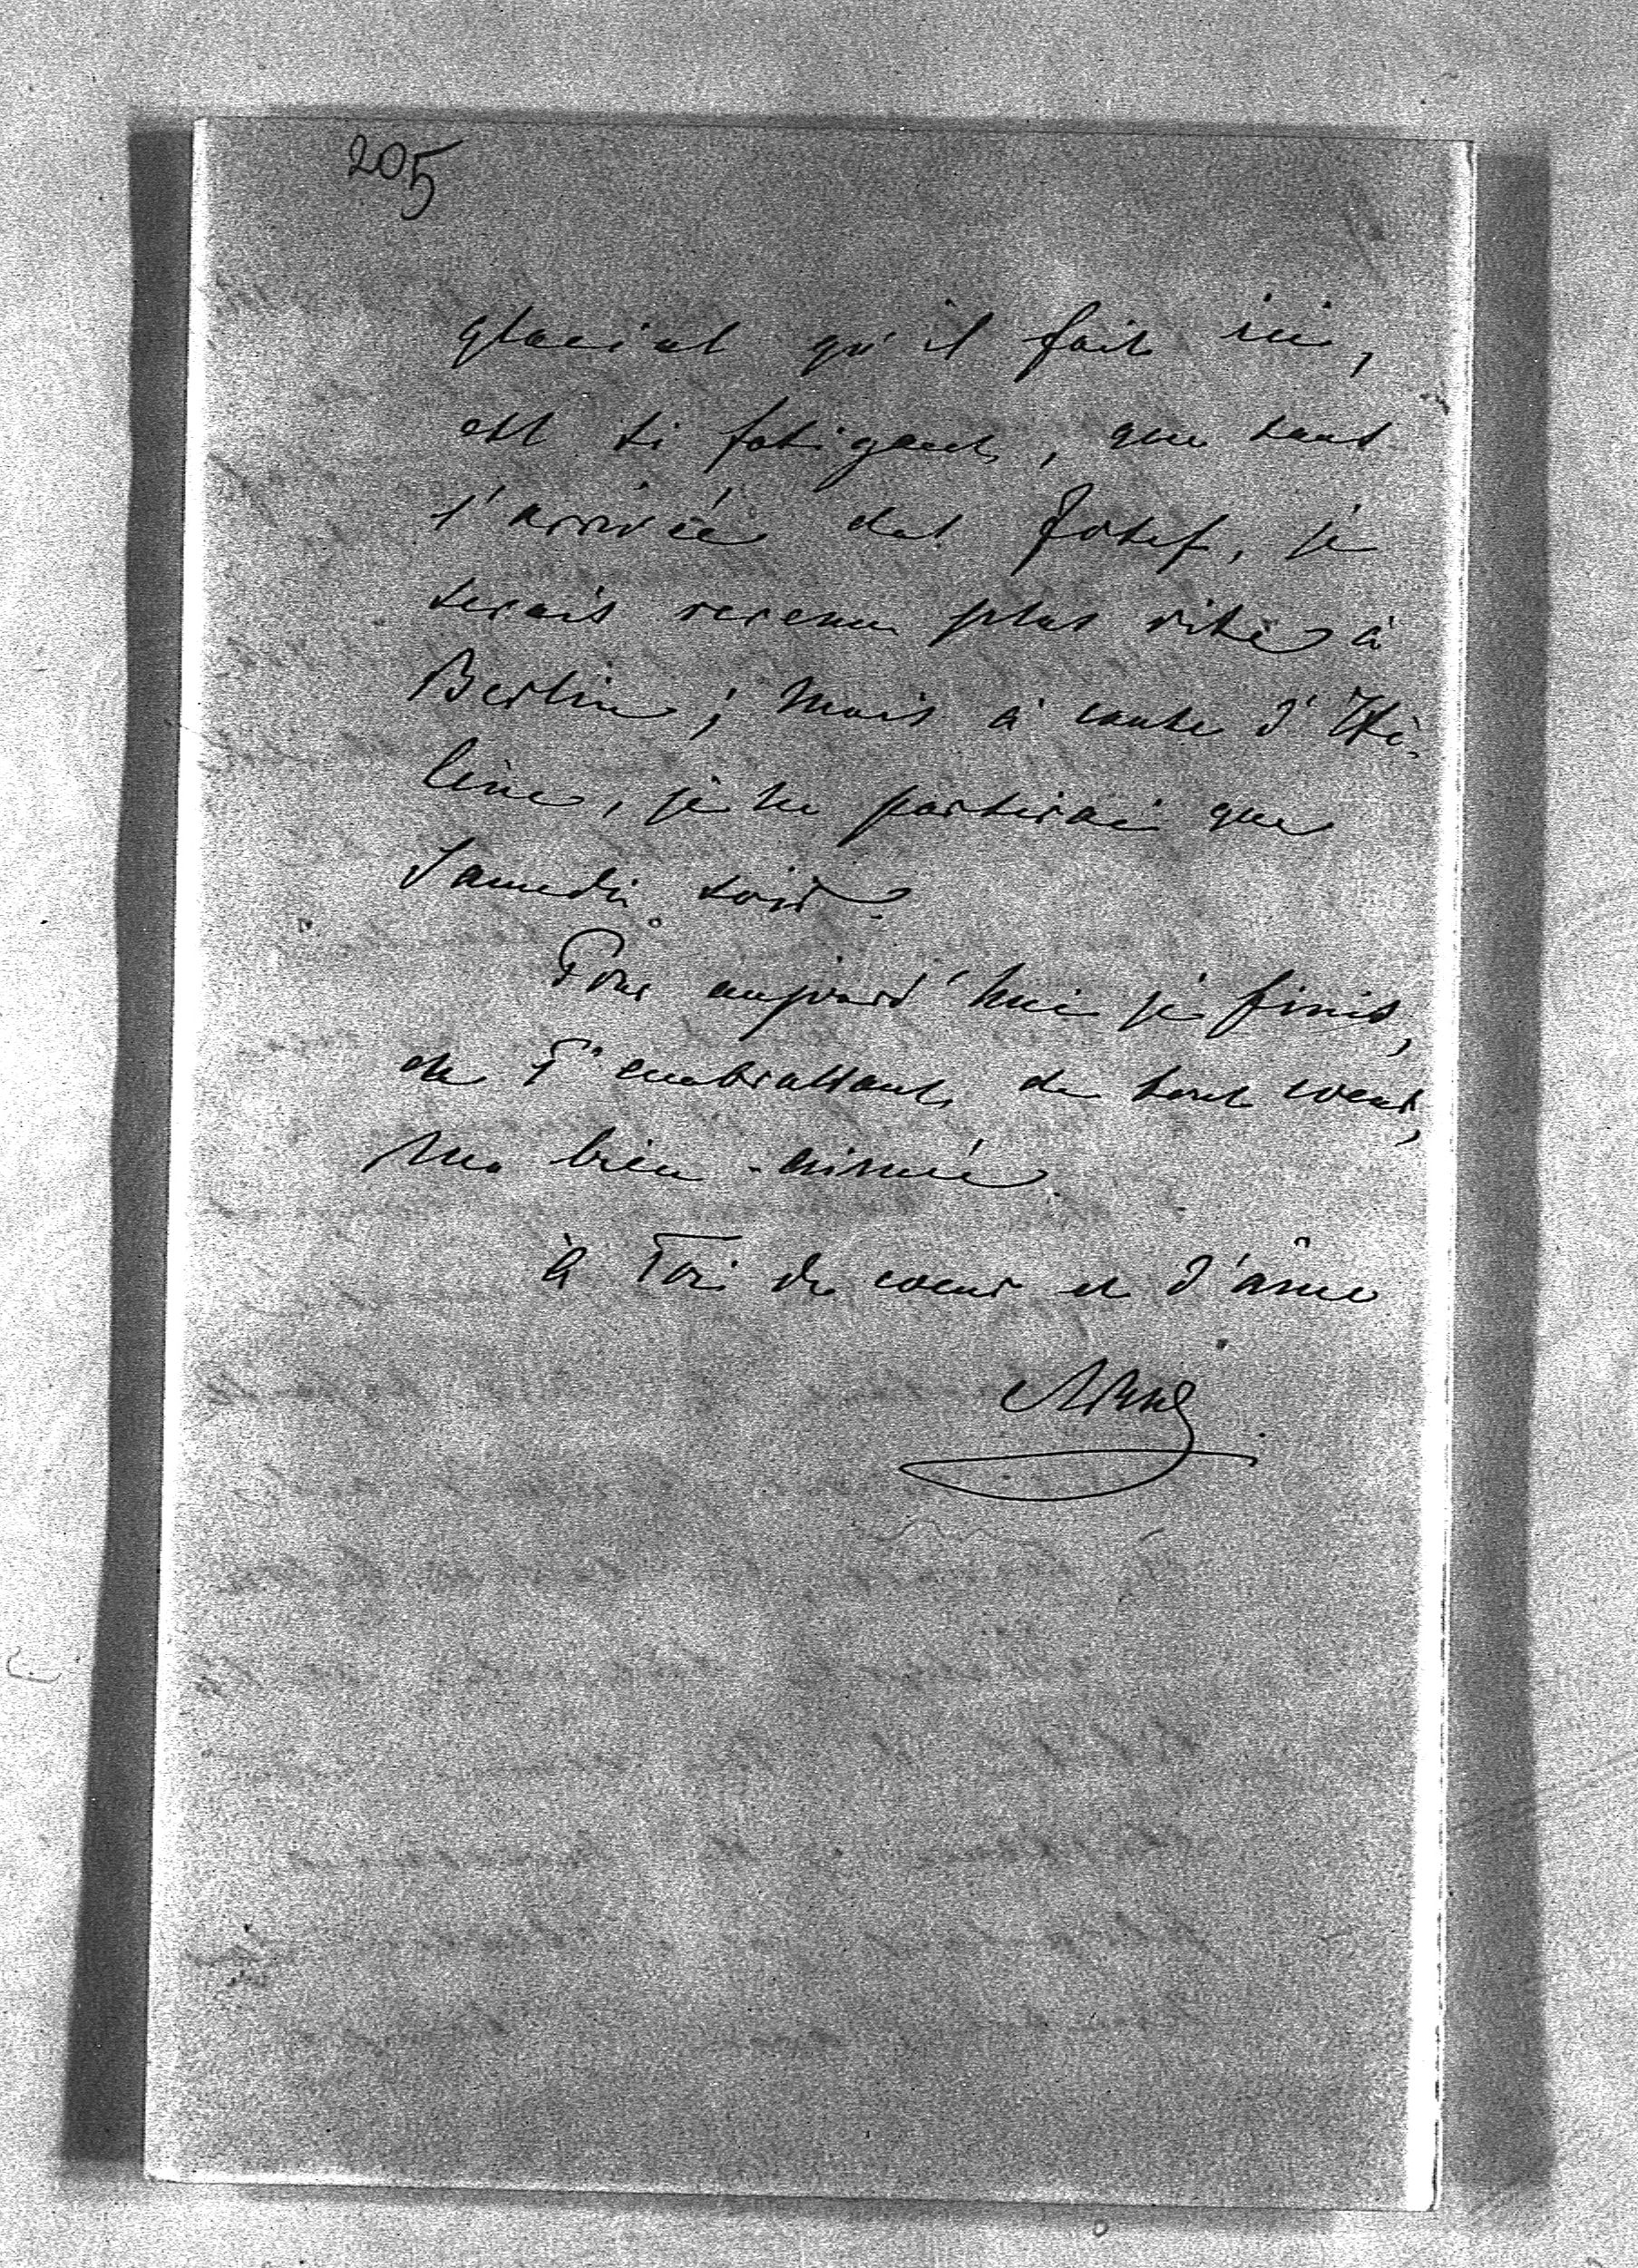 205
glacial qu'il fait ici,
est si fatigant, que sans
l'arrivée des Josef, je
serais revenu plus vite à
Berlin; mais à cause d'Hé-
lène, je ne partirai que
Samedi soir.
Pour aujourd'hui je finis,
en T'embrassant de tout coeur,
ma bien-aimée.
à Toi de coeur et d'âme